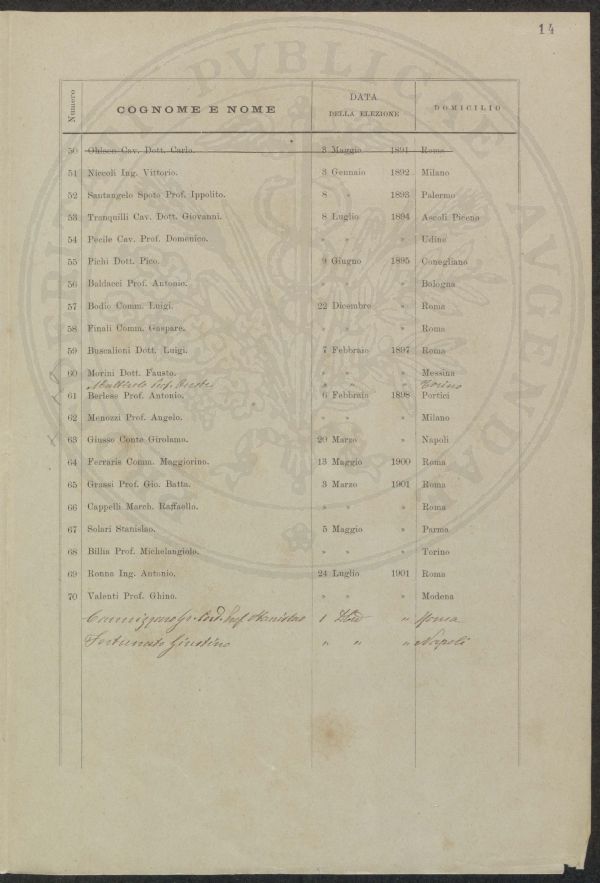 14
Numero COGNOME E NOME DATA DELLA ELEZIONE DOMICILIO
50 Ohlsen Cav. Dott. Carlo. 3 Maggio 1891 Roma
51 Niccoli Ing. Vittorio. 3 Gennaio 1892 Milano
52 Santangelo Spoto Prof. Ippolito. 8 » 1893 Palermo
53 Tranquilli Cav. Dott. Giovanni. 8 Luglio 1894 Ascoli Piceno
54 Pecile Cav. Prof. Domenico. » » » Udine
55 Pichi Dott. Pico. 9 Giugno 1895 Conegliano
56 Baldacci Prof. Antonio. » » » Bologna
57 Bodio Comm. Luigi. 22 Dicembre » Roma
58 Finali Comm. Gaspare. » » » Roma
59 Buscalioni Dott. Luigi. 7 Febbraio 1897 Roma
60 Morini Dott. Fausto. » » » Messina
Mattirolo Prof. Oreste » » » Torino
61 Berlese Prof. Antonio. 6 Febbraio 1898 Portici
62 Menozzi Prof. Angelo. » » » Milano
63 Giusso Conte Girolamo. 20 Marzo » Napoli
64 Ferraris Comm. Maggiorino. 13 Maggio 1900 Roma
65 Grassi Prof. Gio. Batta. 3 Marzo 1901 Roma
66 Cappelli March. Raffaello. » » » Roma
67 Solari Stanislao. 5 Maggio » Parma
68 Billia Prof. Michelangiolo. » » » Torino
69 Ronna Ing. Antonio. 24 Luglio 1901 Roma
70 Valenti Prof. Ghino. » » » Modena
Cannizzaro Gr. Cord. Prof. Stanislao 1 » Roma
Fortunato Giustino » » » Napoli
PVBLICAE